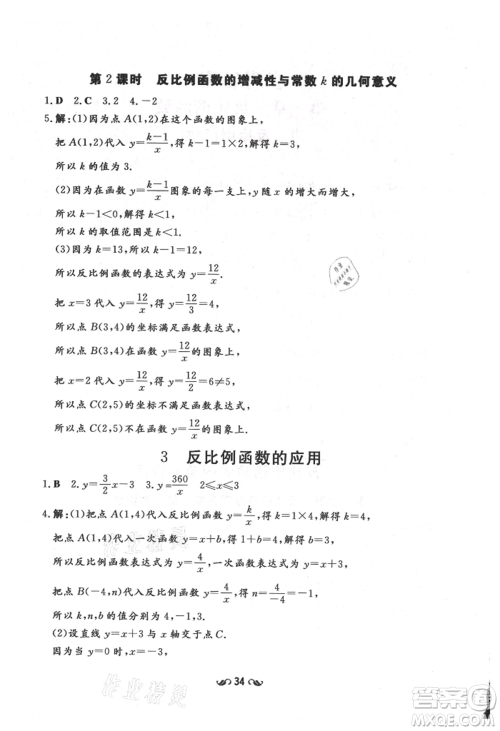 第2课时　反比例函数的增减性与常数k的几何意义
1.D　2.C　3.2　4.-2
5.解:(1)因为点A(1,2)在这个函数的图象上,
把A(1,2)代入y=\frac{k-1}{x},得k-1=1×2,解得k=3,
所以k的值为3.
(2)因为在函数y=\frac{k-1}{x}图象的每一支上,y随x的增大而增大,
所以k-1<0,解得k<1.
所以k的取值范围是k<1.
(3)因为k=13,所以k-1=12,
所以反比例函数的表达式为y=\frac{12}{x}.
把x=3代入y=\frac{12}{x},得y=\frac{12}{3}=4,
所以点B(3,4)的坐标满足函数表达式,
所以点B(3,4)在函数y=\frac{12}{x}的图象上,
把x=2代入y=\frac{12}{x},得y=\frac{12}{2}=6≠5,
所以点C(2,5)的坐标不满足函数表达式,
所以点C(2,5)不在函数y=\frac{12}{x}的图象上.
3　反比例函数的应用
1.B　2.y=\frac{3}{2}x-3　3.y=\frac{360}{x}　2≤x≤3
4.解:(1)把点A(1,4)代入y=\frac{k}{x},得k=1×4,解得k=4.
把点A(1,4)代入一次函数y=x+b,得1+b=4,解得b=3.
所以反比例函数表达式为y=\frac{4}{x},一次函数表达式为y=x+3,
把点B(-4,n)代入y=\frac{4}{x},得n=\frac{4}{-4},解得n=-1.
所以n和b的值分别为-1,3.
(2)设直线y=x+3与x轴交于点C.
因为当y=0时,x=-3,
34
答案圈
MXQE.COM